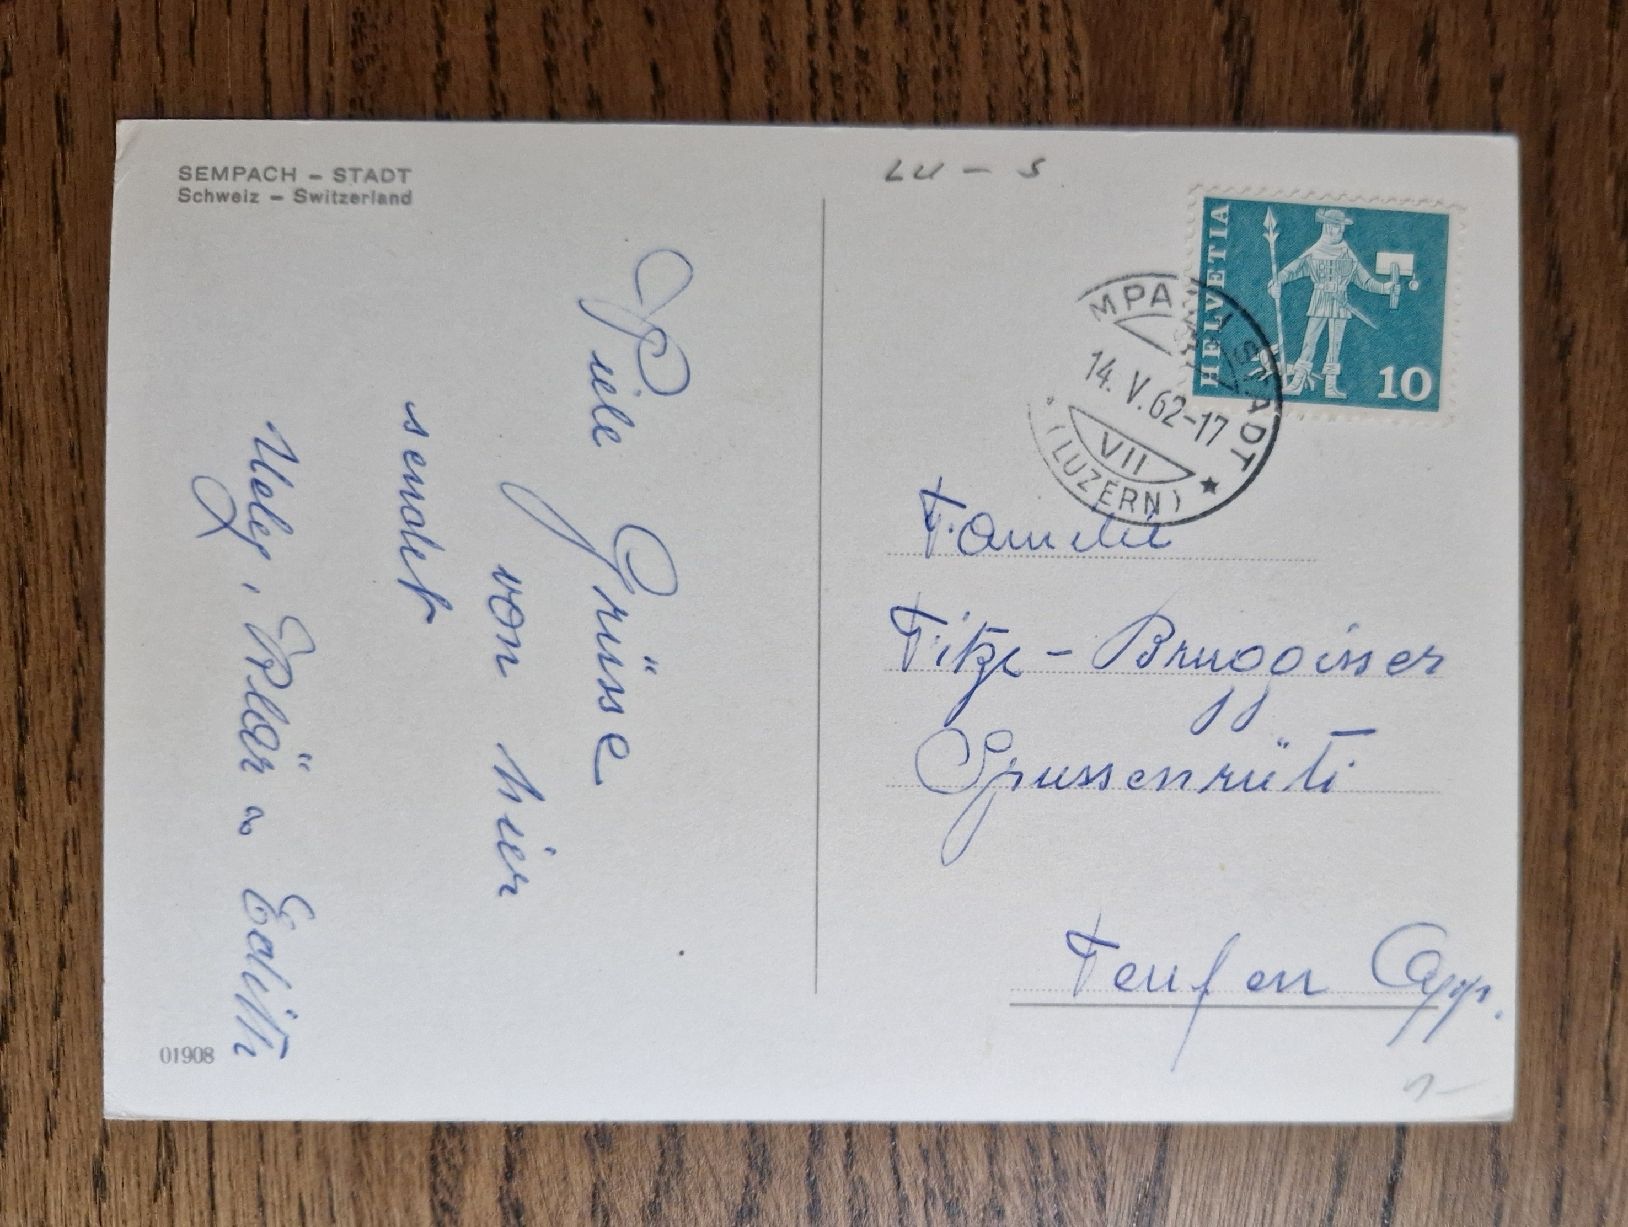 SEMPACH – STADT
Schweiz – Switzerland
Viele Grüsse
von hier
sendet
Uely, Klär u Edith
01908
LU – S
HELVETIA
10
MPA STADT
14. V. 62–17
VII
(LUZERN)
Familie
Fitze – Bruggisser
Spussenrüti
Teufen App.